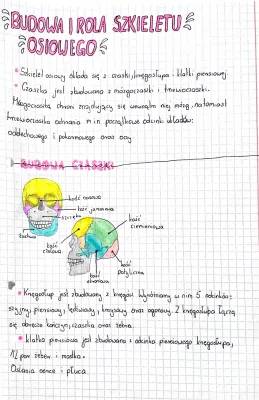 BUDOWA I ROLA SZKIELETU
OSIOWEGO
• Szkielet osiowy składa się z czaszki, kręgosłupa i klatki piersiowej
• Czaszka jest zbudowana z mózgoczaszki i trzewioczaszki.
Mózgoczaszka chroni znajdujący się wewnątrz niej mózg, natomiast
trzewioczaszka ochrania m.in. początkowe odcinki układów:
oddechowego i pokarmowego oraz oczy.
BUDOWA CZASZKI
kość nosowa
kość jarzmowa
szczęka
żuchwa
kość
czołowa
kość
ciemieniowa
kość
skroniowa
kość
potyliczna
• Kręgosłup jest zbudowany z kręgów. Wyróżniamy w nim 5 odcinków:
szyjny, piersiowy, lędźwiowy, krzyżowy oraz ogonowy. Z kręgosłupa łączą
się obręcze kończyn, czaszka oraz żebra.
• klatka piersiowa jest zbudowana z odcinka piersiowego kręgosłupa,
12 par żeber i mostka.
Osłania serce i płuca